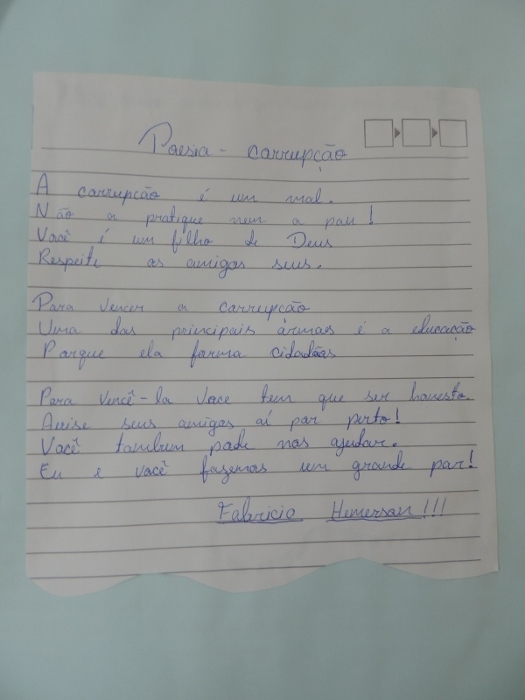 Poesia - corrupção
A corrupção é um mal.
Não a pratique nem a pau!
Você é um filho de Deus
Respeite os amigos seus.
Para vencer a corrupção
Uma das principais ármas é a educação
Porque ela forma cidadãos
Para vencê-la voce tem que ser honesto
Avise seus amigos aí por perto!
Você tambem pode nos ajudar.
Eu e você fazemos um grande par!
Fabricio Hemerson!!!